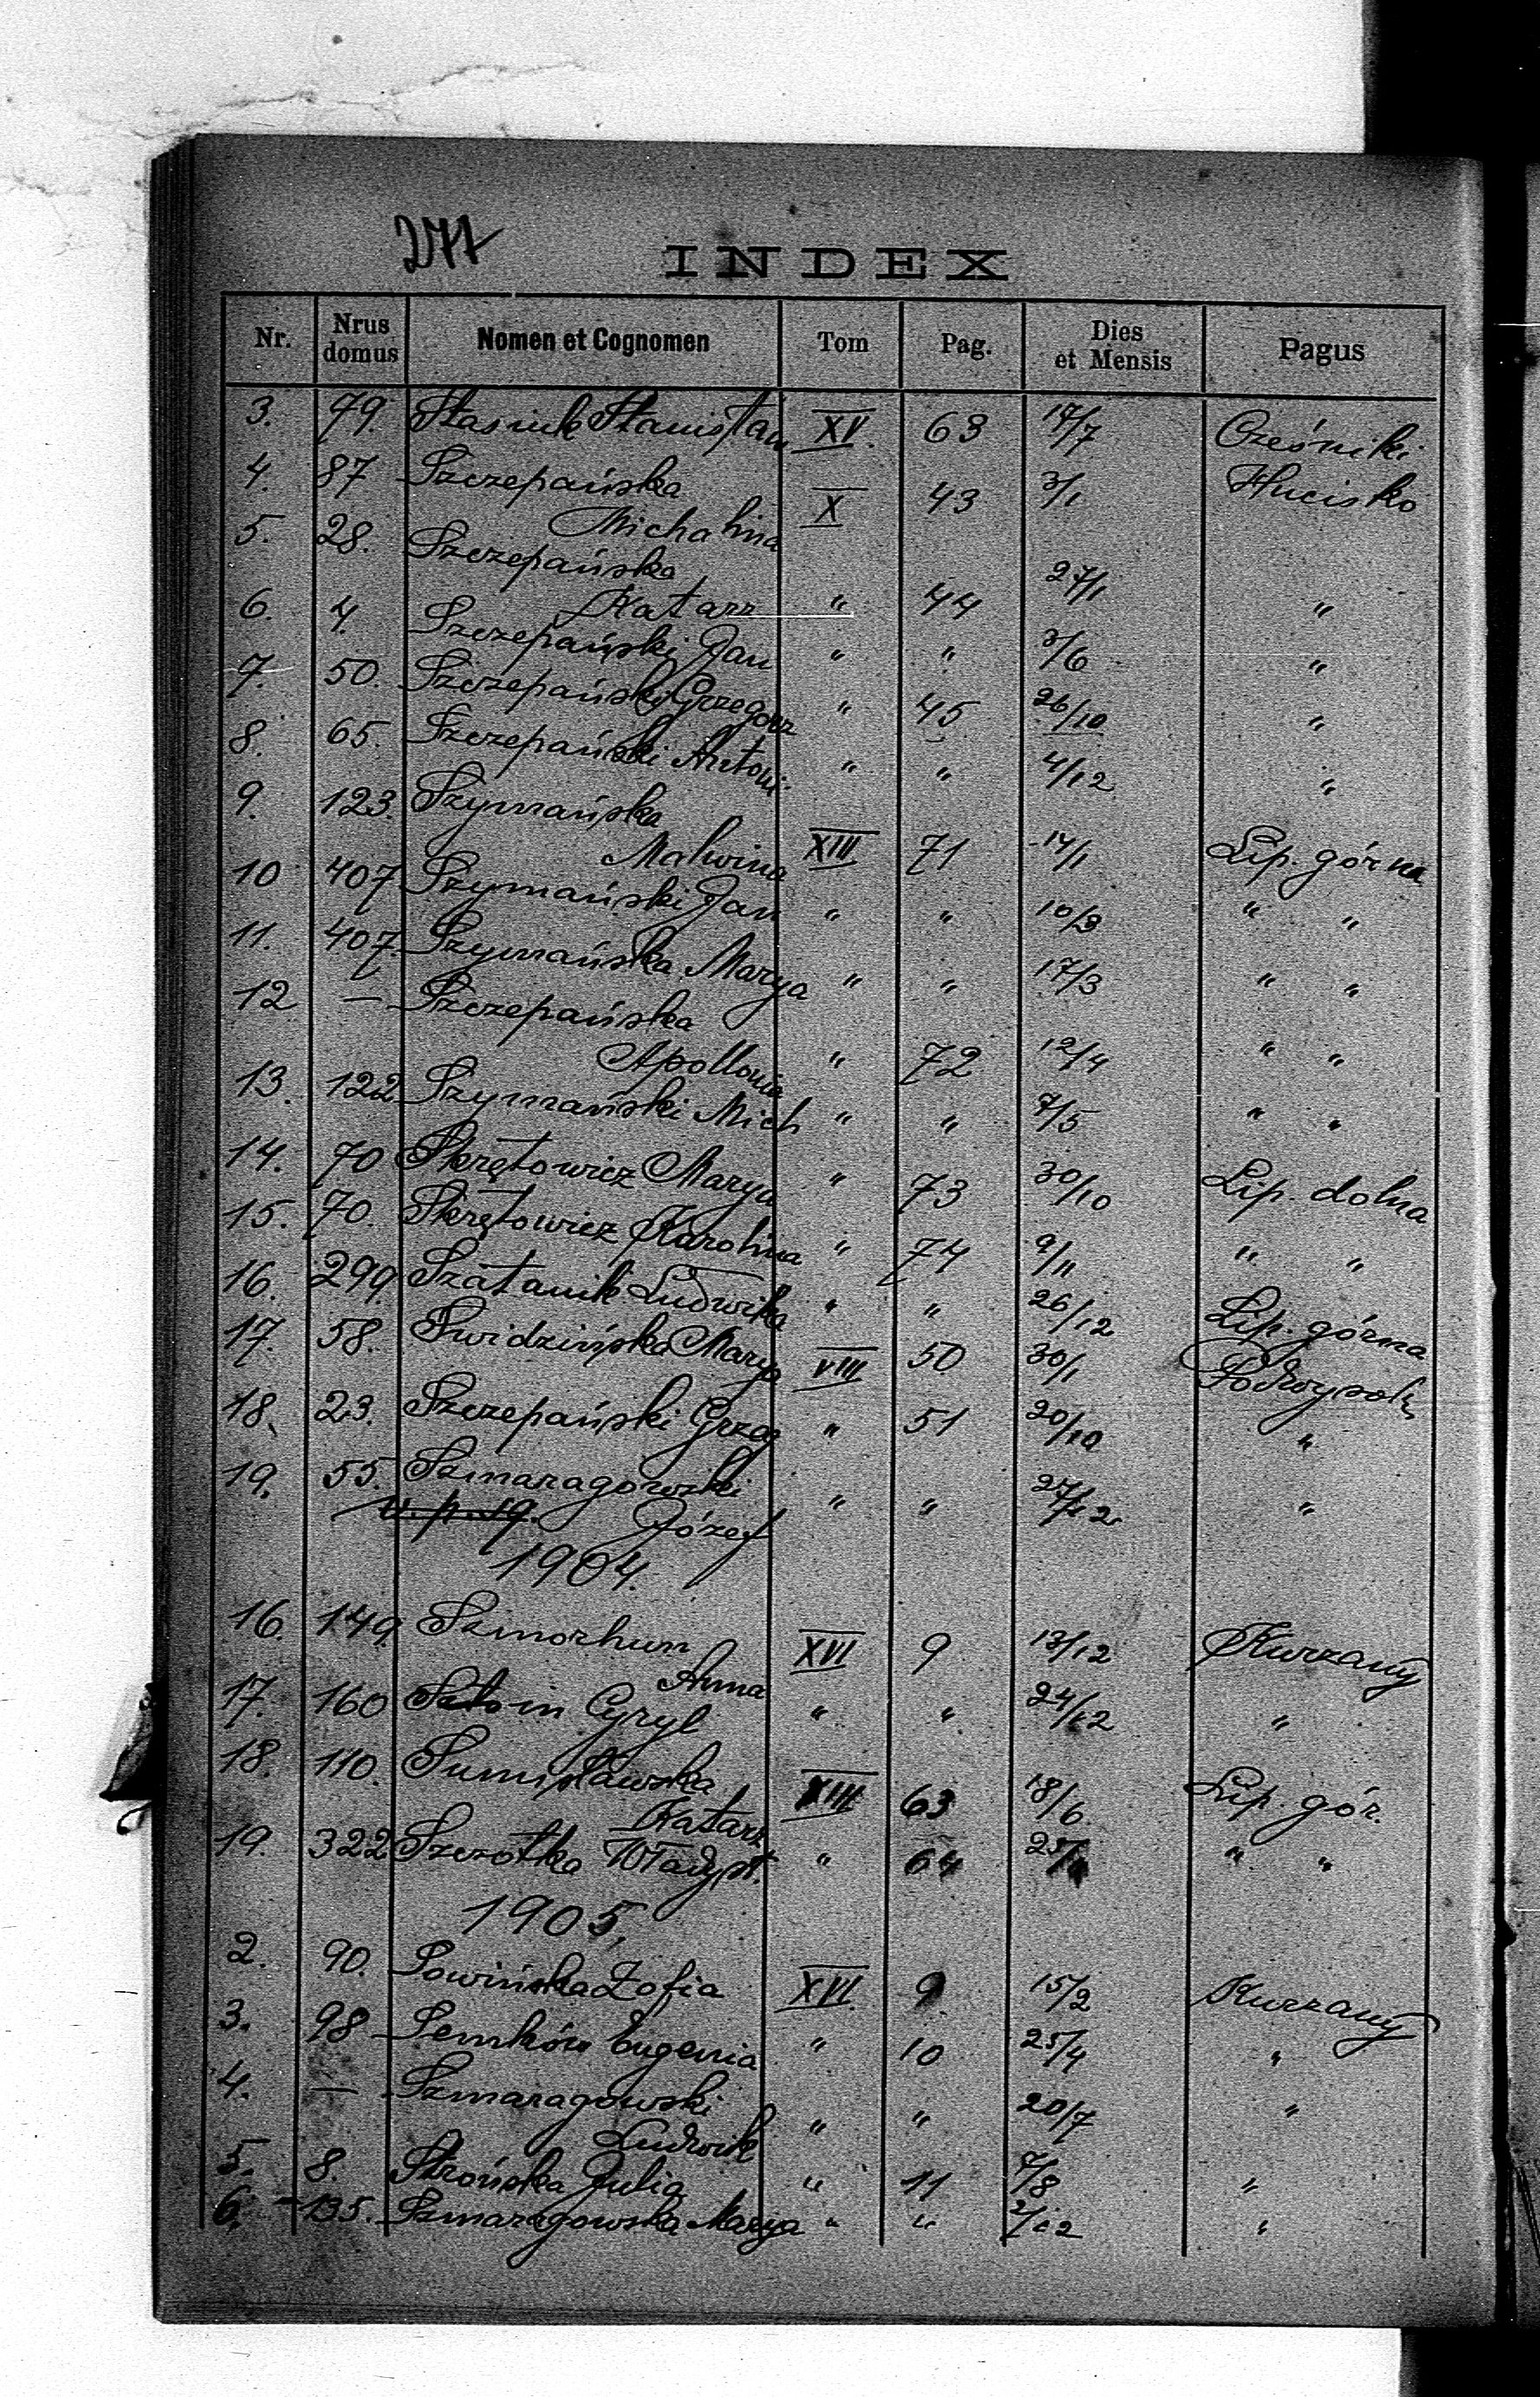 277
INDEX
Nr. Nrus domus Nomen et Cognomen Tom Pag. Dies et Mensis Pagus
3. 79. Stasiuk Stanisław XV. 63 17/7 Cześniki
4. 87 Szczepańska
Michalina X 43 3/1 Hucisko
5. 28. Szczepańska
Katarz " 44 27/1 "
6. 4. Szczepański Jan " " 3/6 "
7. 50. Szczepański Grzegorz " 45 26/10 "
8. 65. Szczepański Antoni " " 4/12 "
9. 123. Szymańska
Malwina XIII 71 14/1 Lip. górna
10 407 Szymański Jan " " 10/3 " "
11. 407. Szymańska Marya " " 17/3 " "
12 — Szczepańska
Apollonia " 72 12/4 " "
13. 122 Szymański Mich " " 7/5 " "
14. 70 Skrętowicz Marya " 73 30/10 Lip. dolna
15. 70. Skrętowicz Karolina " 74 9/11 " "
16. 299. Szatanik Ludwika " " 26/12 Lip. górna
17. 58. Swidzińska Marya VIII 50 30/1 Podwysok
18. 23. Szczepański Grzeg " 51 20/10 "
19. 55. Szmaragowski " " 27/12 "
v. p. 19. Józef
1904.
16. 149. Szmorhun
Anna XVI 9 13/12 Kurzany
17. 160 Cyryl " " 24/12 "
18. 110. Sumisławska
Katarz XIII 63 18/6 Lip. gór.
19. 322 Szczotka Władysł. " 64 " "
1905,
2. 90. Sowińska Zofia XVI 9 15/2 Kurzany
3. 98 Semków Eugenia " 10 25/4 "
4. — Szmaragowski
Ludwik " " 20/7 "
5. 8. Strońska Julia " 11 7/8 "
6. 135. Szmaragowska Marya " " 2/12 "